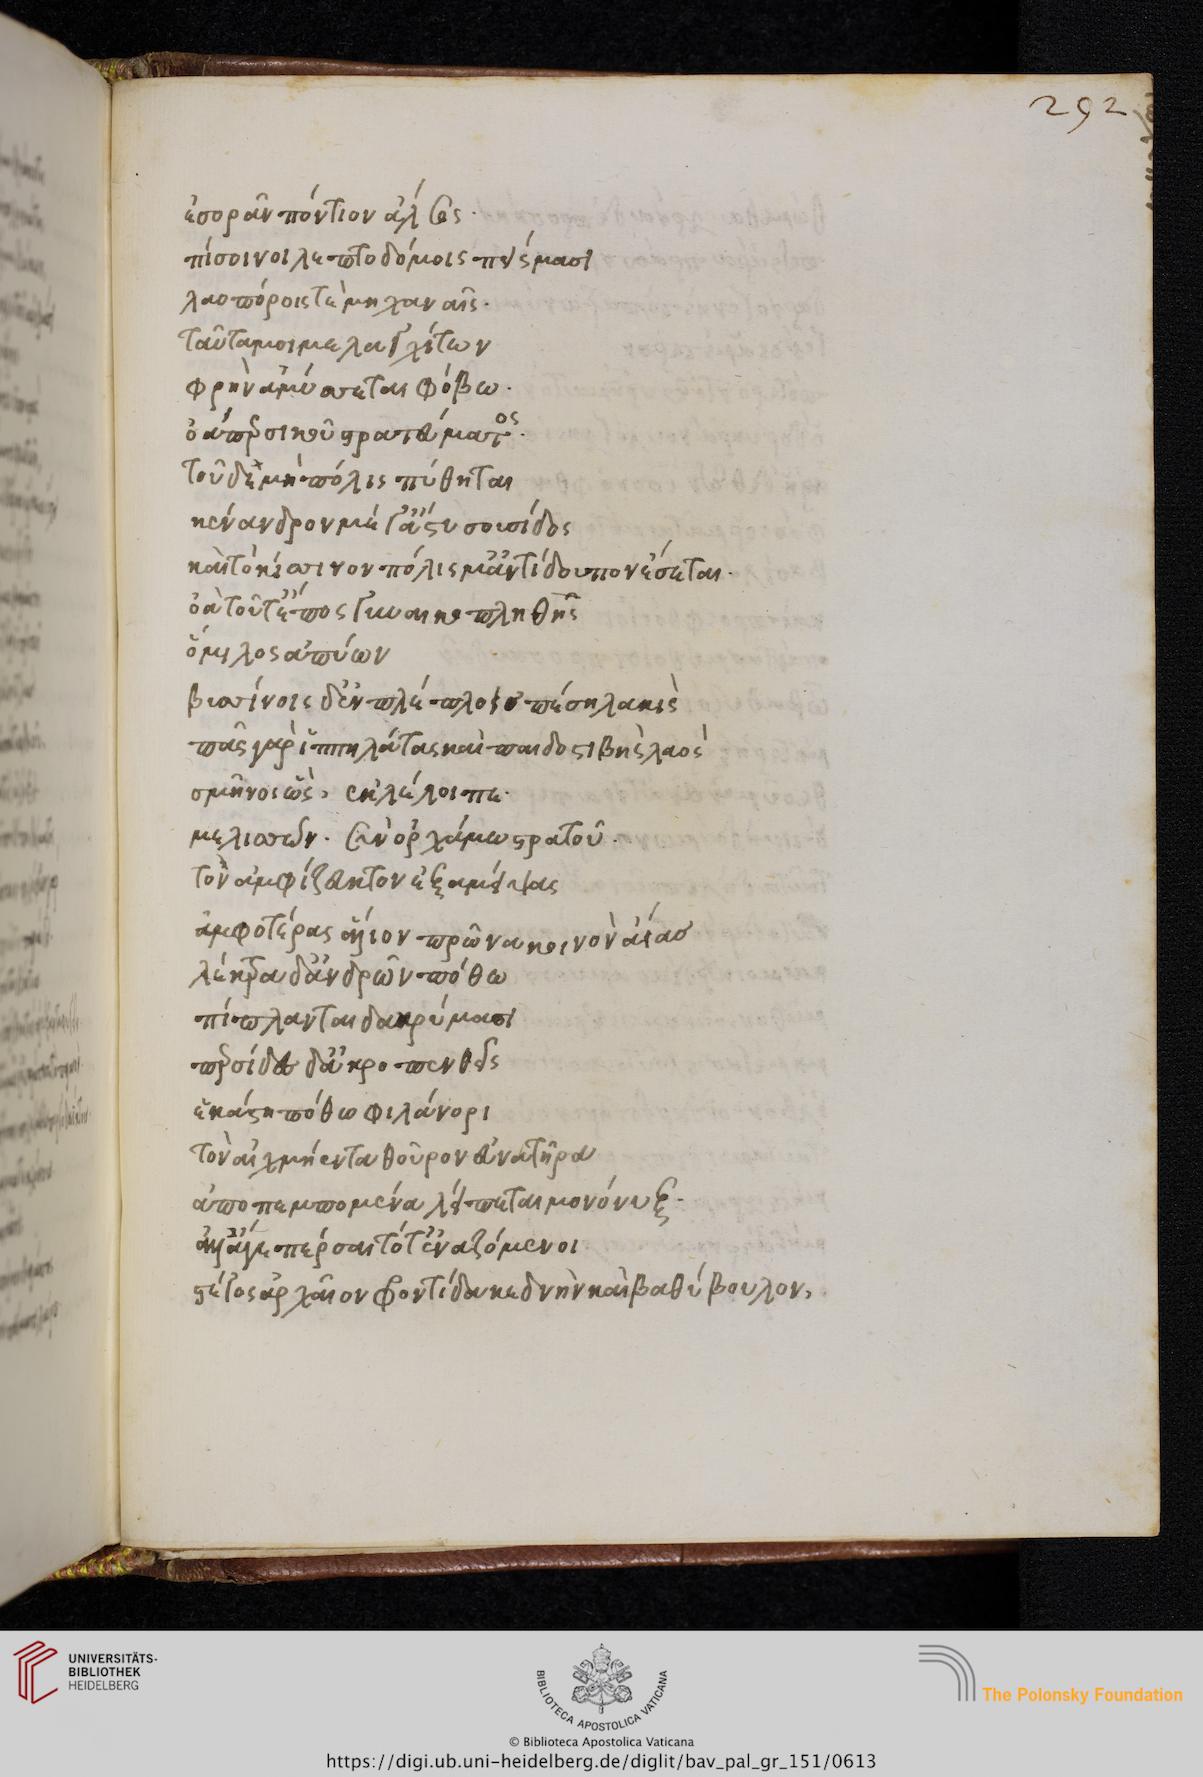 292
ἐσορᾶν πόντιον ἄλσος·
πίσοινοι λεπτοδόμοις πείσμασι
λαοπόροις τὲ μηχαναῖς·
ταῦτα μοι μελαγχίτων
φρὴν ἀμύσσεται φόβω·
ὀὰ περσικοῦ στρατεύματος·
τοῦδε μὴ πόλις πύθηται
κένανδρον μέγ' ἄστυ σουσίδος
καὶ τὸ κίσσινον πόλισμ' ἀντίδουπον ἔσεται·
ὀὰ τοῦτ' ἔπος γυναικοπληθὴς
ὅμιλος ἀπύων
βυσσίνοις δ' ἐν πέπλοις πέση λακὶς
πᾶς γὰρ ἱππηλάτας καὶ παιδοστιβὴς λαὸς
σμῆνος ὣς, ἐκλέλοιπε·
μελισσῶν· σὺν ὀρχάμω στρατοῦ·
τὸν ἀμφίζευκτον ἐξαμείψας
ἀμφοτέρας ἅλιον πρῶνα κοινὸν αἴας
λέκτρα δ' ἀνδρῶν πόθω
πίπλανται δακρύμασι
περσίδες δ' ἀκροπενθεῖς
ἑκάστη πόθω φιλάνορι
τὸν αἰχμήεντα θοῦρον εὐνατῆρα
ἀποπεμπομένα λείπεται μονόζυξ·
ἀλλ' ἄγε πέρσαι τόδ' ἐναζόμενοι
στέγος ἀρχαῖον φροντίδα κεδνὴν καὶ βαθύβουλον,
UNIVERSITÄTS-
BIBLIOTHEK
HEIDELBERG
BIBLIOTECA APOSTOLICA VATICANA
The Polonsky Foundation
© Biblioteca Apostolica Vaticana
https://digi.ub.uni-heidelberg.de/diglit/bav_pal_gr_151/0613